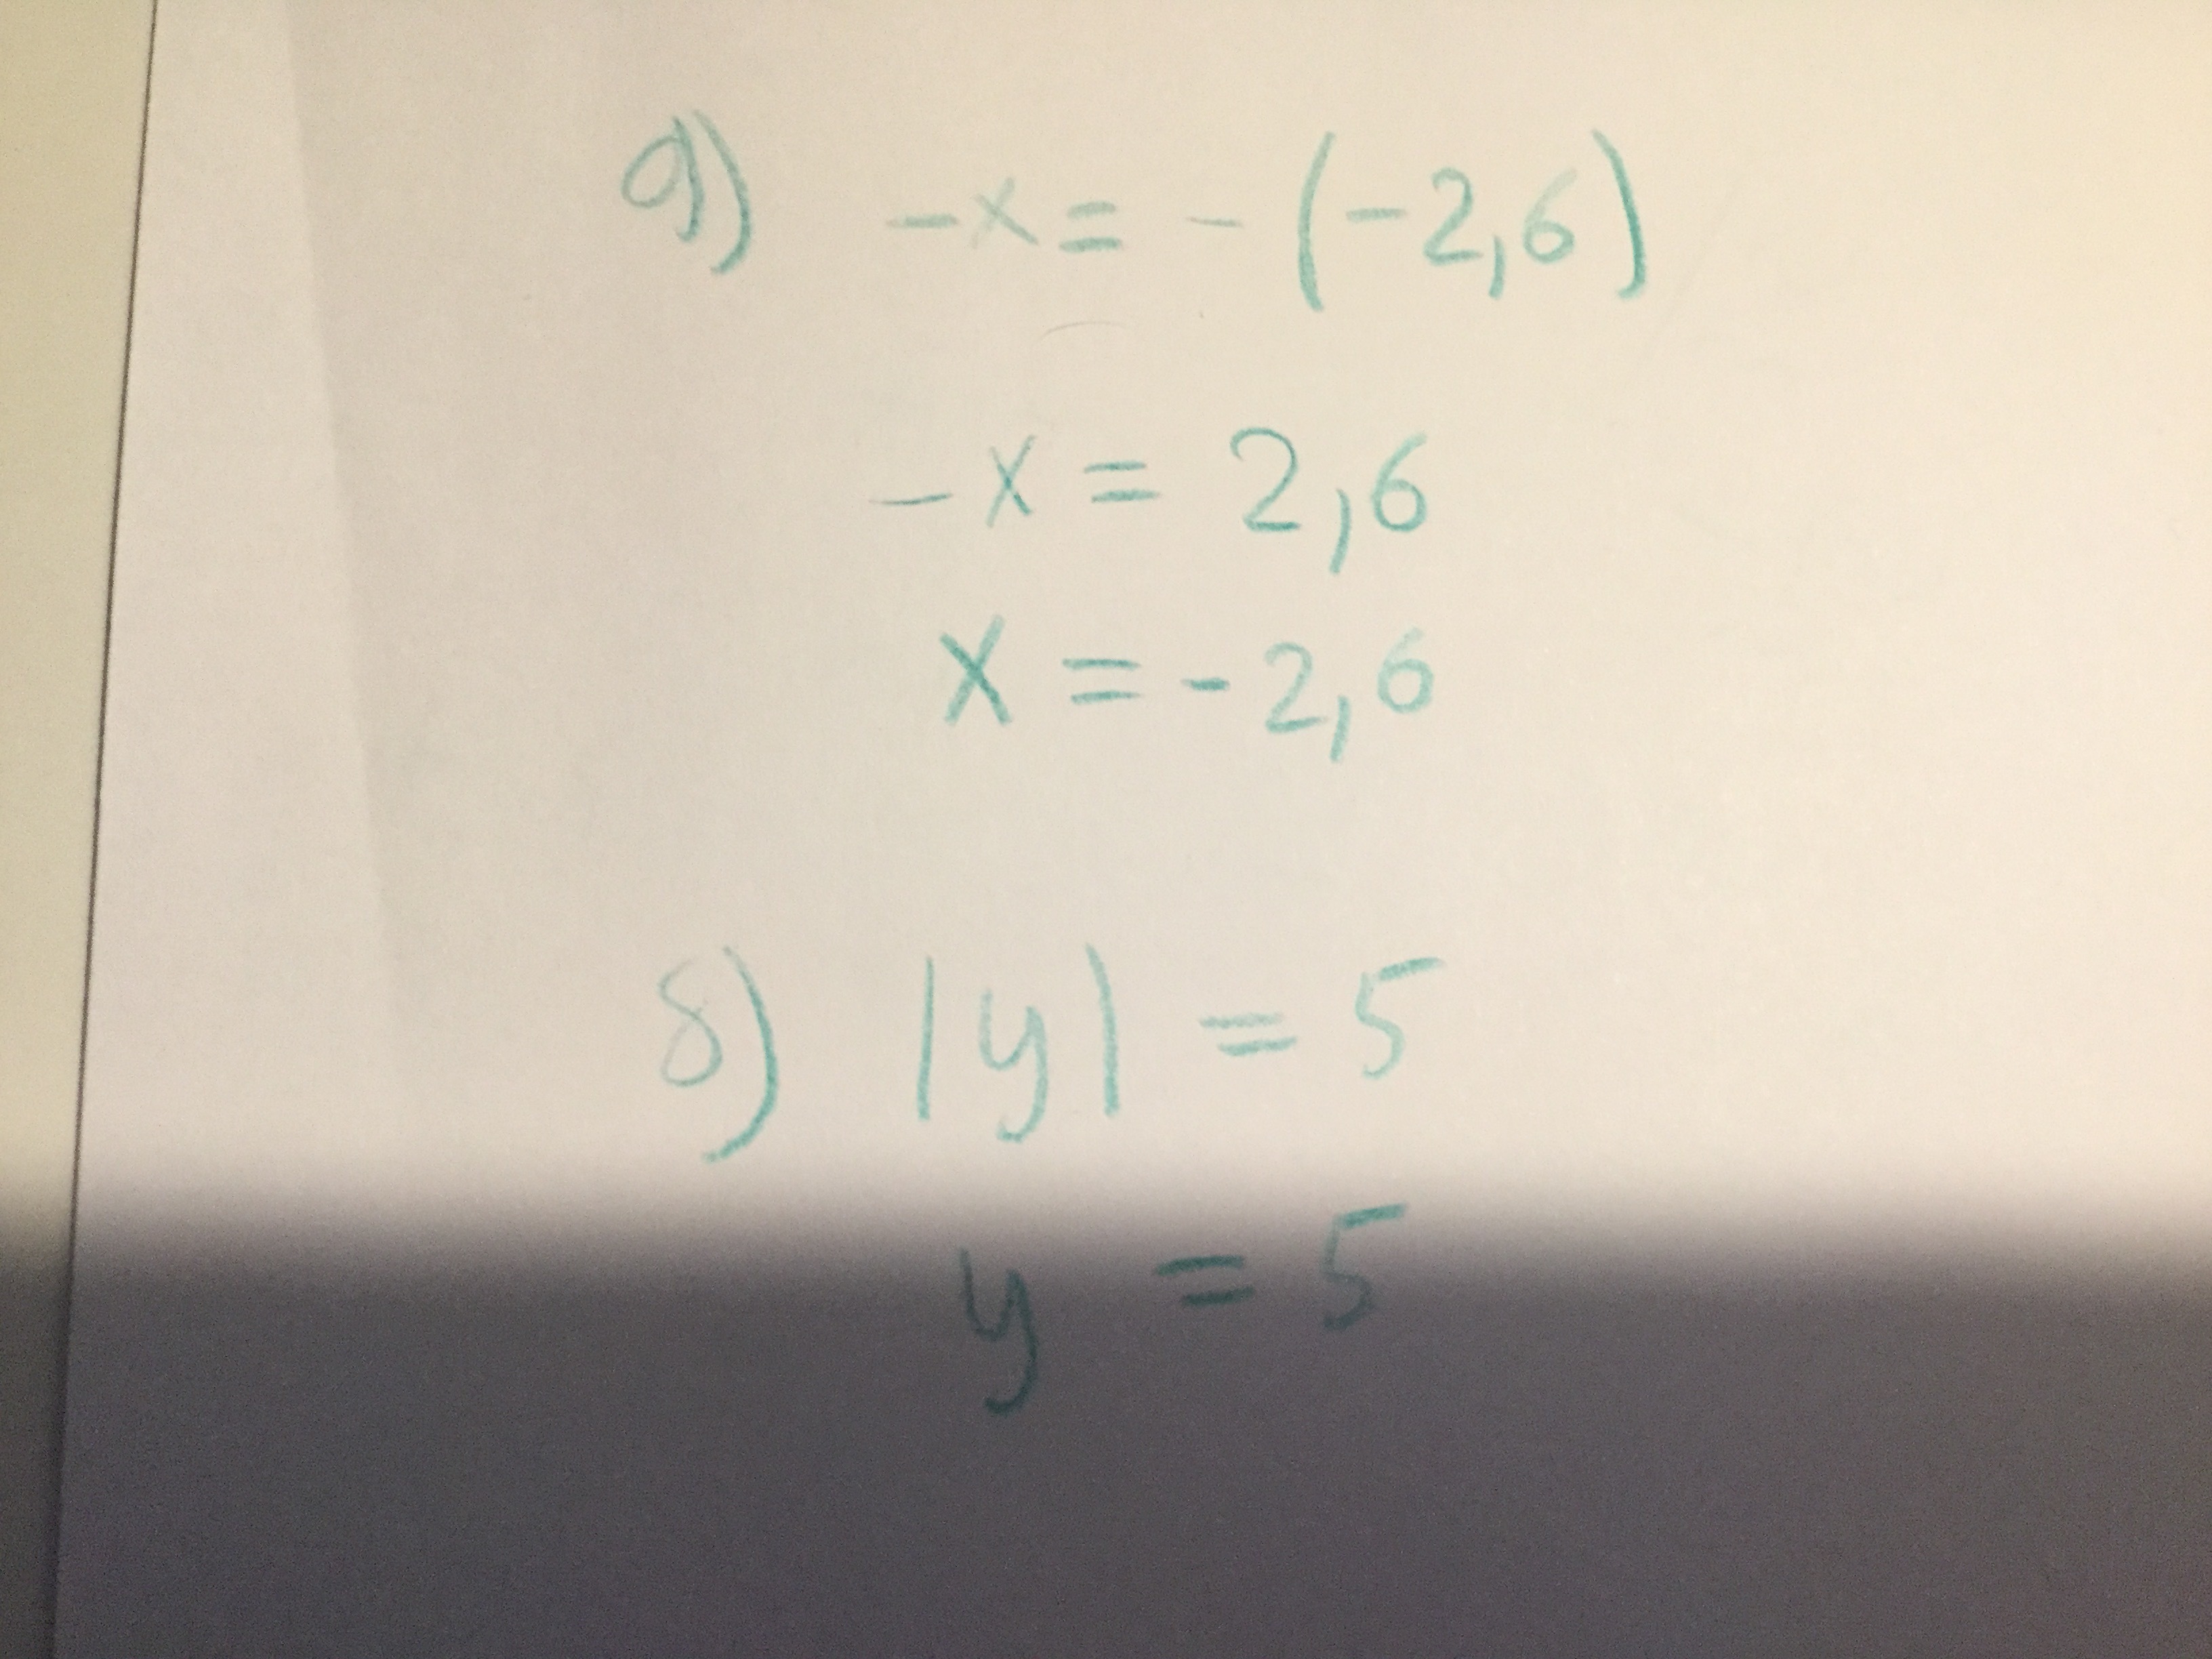 а) -x = - (-2,6)
-x = 2,6
x = -2,6
б) |y| = 5
y = 5